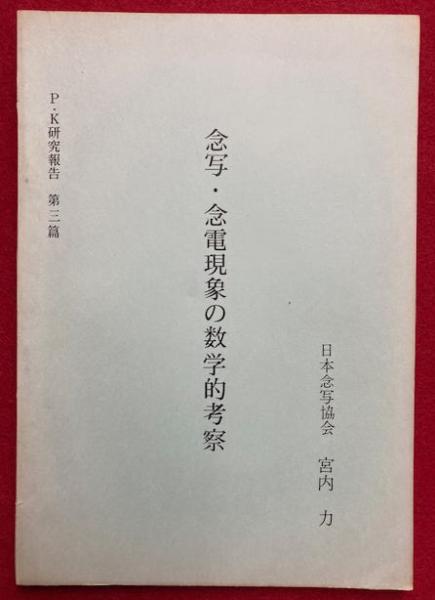 日本念写協会　宮内　力
念写・念電現象の数学的考察
P・K研究報告　第三篇